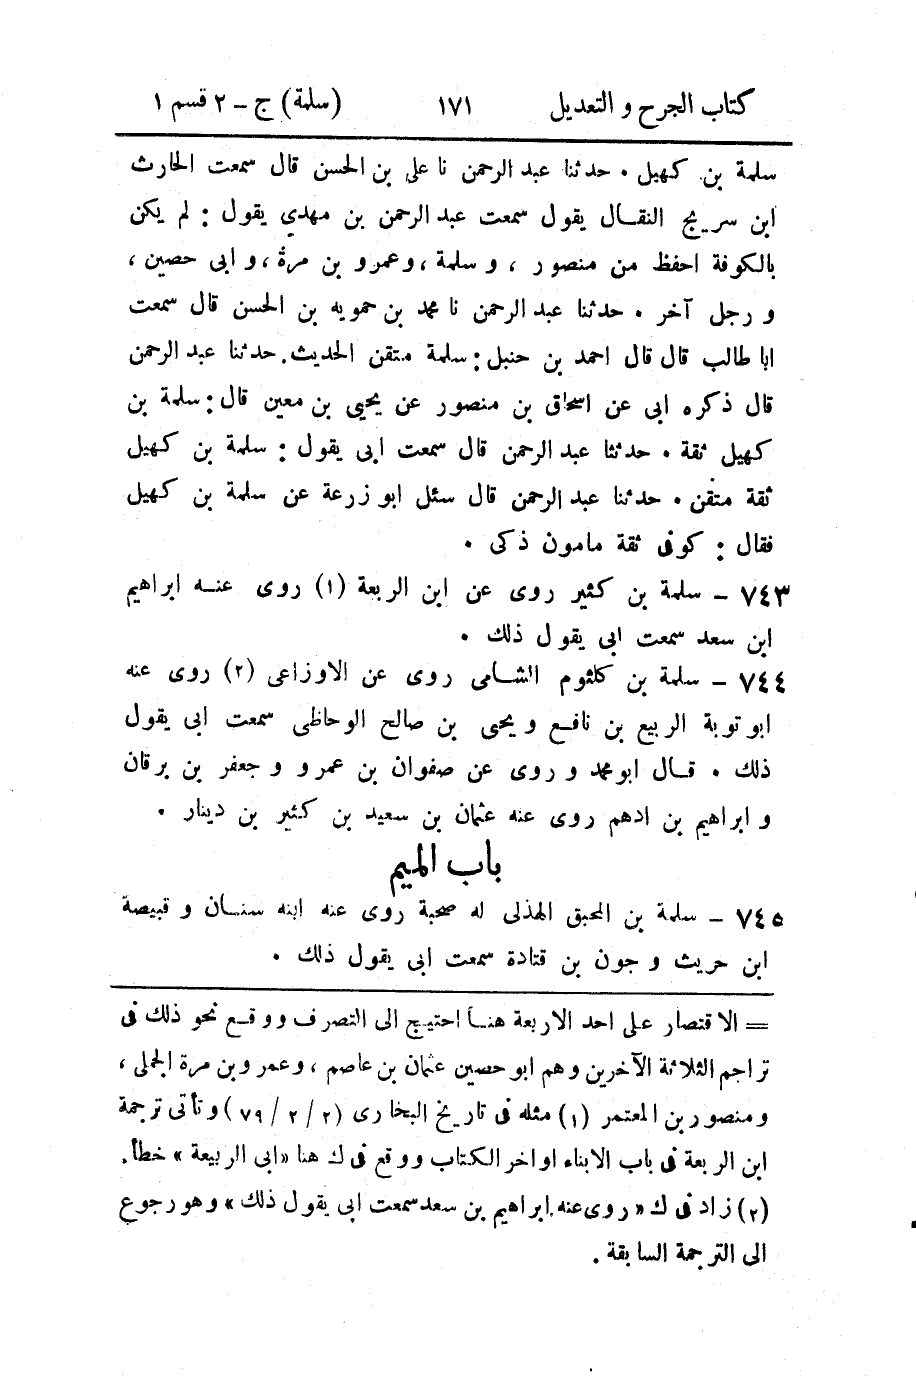 كتاب الجرح و التعديل ١٧١ (سلمة) ج - ٢ قسم ١
سلمة بن كهيل . حدثنا عبد الرحمن نا على بن الحسن قال سمعت الحارث
ابن سريج النقال يقول سمعت عبد الرحمن بن مهدي يقول : لم يكن
بالكوفة احفظ من منصور ، و سلمة ، وعمرو بن مرة ، و ابى حصين ،
و رجل آخر . حدثنا عبد الرحمن نا محمد بن حمويه بن الحسن قال سمعت
ابا طالب قال قال احمد بن حنبل : سلمة متقن الحديث . حدثنا عبد الرحمن
قال ذكره ابى عن اسحاق بن منصور عن يحيى بن معين قال : سلمة بن
كهيل ثقة . حدثنا عبد الرحمن قال سمعت ابى يقول : سلمة بن كهيل
ثقة متقن . حدثنا عبد الرحمن قال سئل ابو زرعة عن سلمة بن كهيل
فقال : كوفى ثقة مامون ذكى .
٧٤٣ - سلمة بن كثير روى عن ابن الربعة (١) روى عنه ابراهيم
ابن سعد سمعت ابى يقول ذلك .
٧٤٤ - سلمة بن كلثوم الشامى روى عن الاوزاعى (٢) روى عنه
ابو توبة الربيع بن نافع و يحيى بن صالح الوحاظى سمعت ابى يقول
ذلك . قال ابو محمد و روى عن صفوان بن عمرو و جعفر بن برقان
و ابراهيم بن ادهم روى عنه عثمان بن سعيد بن كثير بن دينار .
باب الميم
٧٤٥ - سلمة بن المحبق الهذلى له صحبة روى عنه ابنه سنان و قبيصة
ابن حريث و جون بن قتادة سمعت ابى يقول ذلك .
= الاقتصار على احد الاربعة هنا احتيج الى التصرف ووقع نحو ذلك فى
تراجم الثلاثة الآخرين وهم ابو حصين عثمان بن عاصم ، وعمرو بن مرة الجملى ،
ومنصور بن المعتمر (١) مثله فى تاريخ البخارى (٢/٢/٧٩) وتأتى ترجمة
ابن الربعة فى باب الابناء اواخر الكتاب ووقع فى ك هنا «ابى الربيعة» خطأ.
(٢) زاد فى ك « روى عنه ابراهيم بن سعد سمعت ابى يقول ذلك » وهو رجوع
الى الترجمة السابقة .